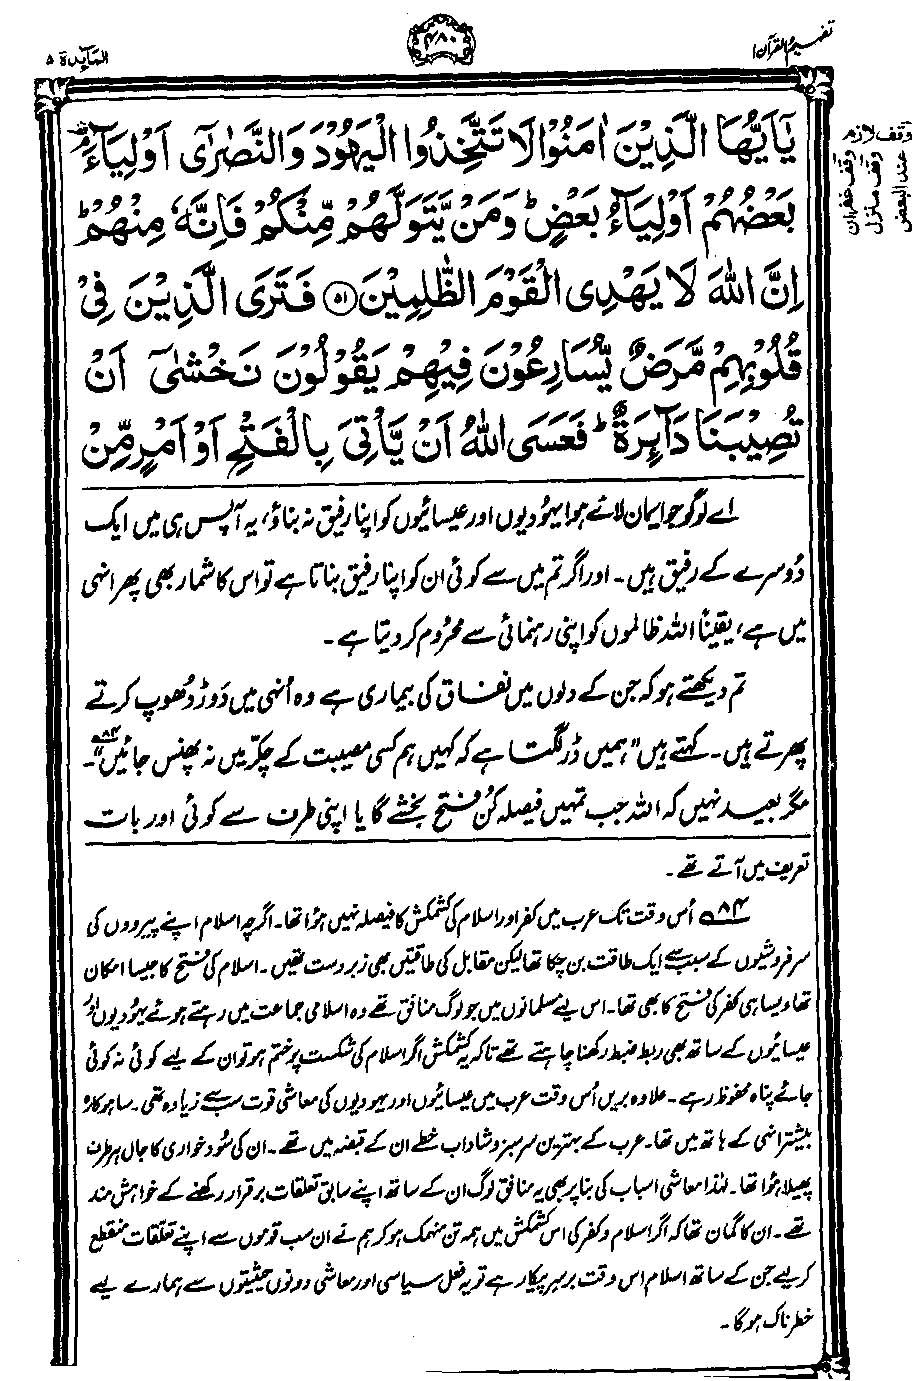 تفہیم القرآن ۱
۴۸۰
المآئدۃ ۵
يٰٓاَيُّهَا الَّذِيْنَ اٰمَنُوْا لَا تَتَّخِذُوا الْيَهُوْدَ وَالنَّصٰرٰٓى اَوْلِيَآءَ ۘؔ
بَعْضُهُمْ اَوْلِيَآءُ بَعْضٍ ؕ وَمَنْ يَّتَوَلَّهُمْ مِّنْكُمْ فَاِنَّهٗ مِنْهُمْ ؕ
اِنَّ اللّٰهَ لَا يَهْدِى الْقَوْمَ الظّٰلِمِيْنَ ﴿۵۱﴾ فَتَرَى الَّذِيْنَ فِىْ
قُلُوْبِهِمْ مَّرَضٌ يُّسَارِعُوْنَ فِيْهِمْ يَقُوْلُوْنَ نَخْشٰٓى اَنْ
تُصِيْبَنَا دَآئِرَةٌ ؕ فَعَسَى اللّٰهُ اَنْ يَّاْتِىَ بِالْفَتْحِ اَوْ اَمْرٍ مِّنْ
وقف لازم
وقف منزل
وقف غفران
عند البعض
اے لوگو جو ایمان لائے ہو! یہودیوں اور عیسائیوں کو اپنا رفیق نہ بناؤ، یہ آپس ہی میں ایک
دُوسرے کے رفیق ہیں۔ اور اگر تم میں سے کوئی ان کو اپنا رفیق بناتا ہے تو اس کا شمار بھی پھر انہی
میں ہے، یقیناً اللہ ظالموں کو اپنی رہنمائی سے محرُوم کر دیتا ہے۔
تم دیکھتے ہو کہ جن کے دلوں میں نفاق کی بیماری ہے وہ اُنہی میں دَوڑ دھُوپ کرتے
پھرتے ہیں۔ کہتے ہیں "ہمیں ڈر لگتا ہے کہ کہیں ہم کسی مصیبت کے چکّر میں نہ پھنس جائیں۸۴"۔
مگر بعید نہیں کہ اللہ جب تمہیں فیصلہ کُن فتح بخشے گا یا اپنی طرف سے کوئی اور بات
تعریف میں آتے تھے۔
۸۴ اُس وقت تک عرب میں کفر اور اسلام کی کشمکش کا فیصلہ نہیں ہوا تھا۔ اگرچہ اسلام اپنے پیرووں کی
سرفروشیوں کے سبب سے ایک طاقت بن چکا تھا لیکن مقابل کی طاقتیں بھی زبردست تھیں۔ اسلام کی فتح کا جیسا امکان
تھا ویسا ہی کفر کی فتح کا بھی تھا۔ اس لیے مسلمانوں میں جو لوگ منافق تھے وہ اسلامی جماعت میں رہتے ہوئے یہودیوں اور
عیسائیوں کے ساتھ بھی ربط ضبط رکھنا چاہتے تھے تاکہ یہ کشمکش اگر اسلام کی شکست پر ختم ہو تو ان کے لیے کوئی نہ کوئی
جائے پناہ محفوظ رہے۔ علاوہ بریں اُس وقت عرب میں عیسائیوں اور یہودیوں کی معاشی قوت سب سے زیادہ تھی۔ ساہوکارہ
بیشتر انہی کے ہاتھ میں تھا۔ عرب کے بہترین سرسبز و شاداب خطے ان کے قبضہ میں تھے۔ ان کی سُود خواری کا جال ہر طرف
پھیلا ہوا تھا۔ لہٰذا معاشی اسباب کی بنا پر بھی یہ منافق لوگ ان کے ساتھ اپنے سابق تعلقات برقرار رکھنے کے خواہش مند
تھے۔ ان کا گمان تھا کہ اگر اسلام و کفر کی اس کشمکش میں ہمہ تن منہمک ہو کر ہم نے ان سب قوموں سے اپنے تعلقات منقطع
کر لیے جن کے ساتھ اسلام اس وقت برسرِ پیکار ہے تو یہ فعل سیاسی اور معاشی دونوں حیثیتوں سے ہمارے لیے
خطرناک ہو گا۔